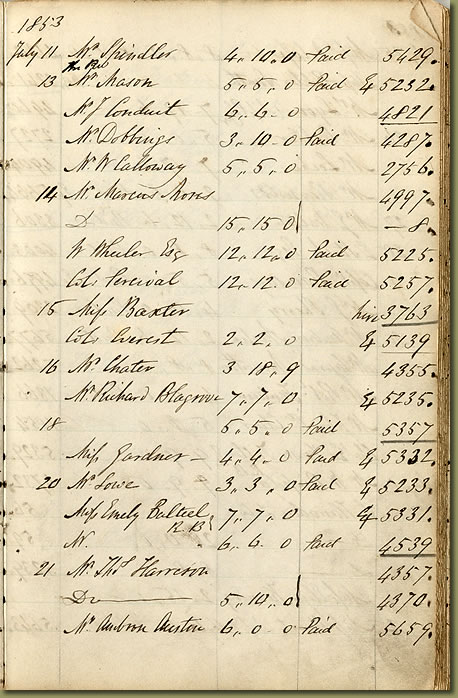 1853
July 11 Mr Spindler 4. 10. 0 Paid 5429.
13 Mr Mason 5. 5. 0 Paid & 5232.
Mr J Conduit 6. 6. 0 4821
Mr Dobbings 3. 10. 0 Paid 4287.
Mr W Calloway 5. 5. 0 2756.
14 Mr Marcus Moses 4997.
Do 15. 15 0 — 8.
W Wheeler Esq 12. 12. 0 Paid 5225.
Col. Percival 12. 12. 0 Paid 5257.
15 Miss Baxter hire 3763
Col. Everest 2. 2. 0 & 5139
16 Mr Chater 3 18. 9 4355.
Mr Richard Blagrove 7. 7. 0 & 5235.
18 5. 5. 0 Paid 5357
Miss Gardner — 4. 4. 0 Paid & 5332.
20 Mr Lowe 3. 3. 0 Paid & 5233.
Miss Emily 7. 7. 0 & 5331.
6. 6. 0 Paid 4539
21 Mr Thos Harrison 4357.
Do — 5. 10. 0 4370.
Mr Austin 6. 0 0 Paid 5659.